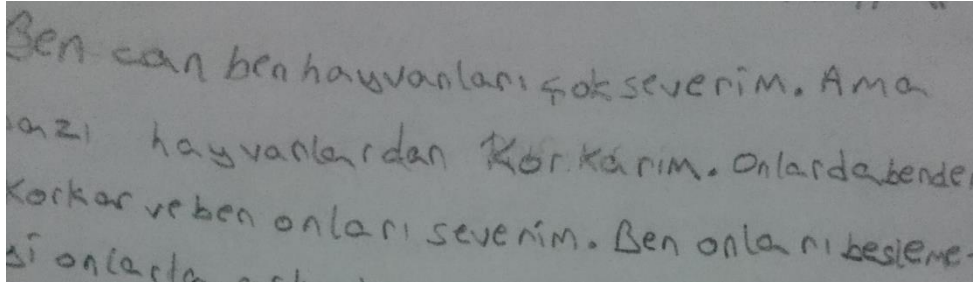 Ben can ben hayvanları çok severim. Ama
azı hayvanlardan Korkarım. Onlarda bende
Korkar ve ben onları severim. Ben onları besleme-
si onlarla